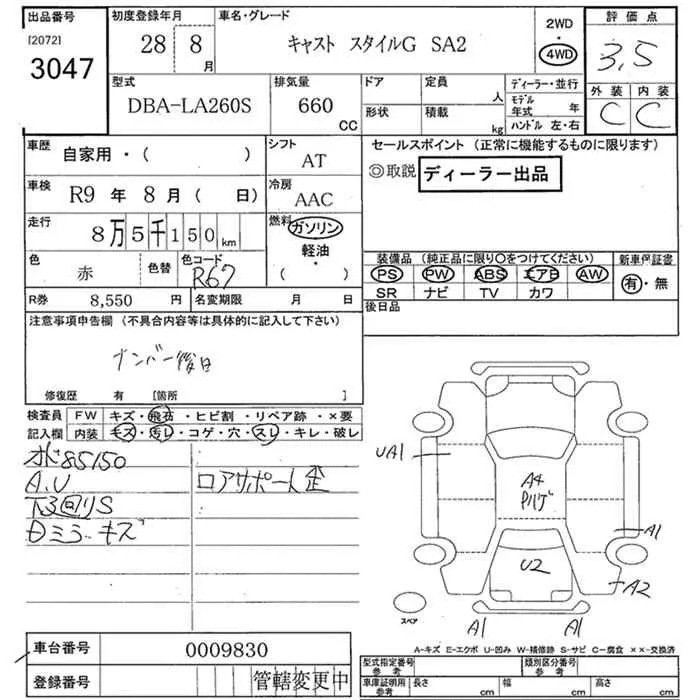 出品番号
[2072]
3047
初度登録年月
28 8
月
車名・グレード
キャスト スタイルG SA2
2WD
・
4WD
評価点
3.5
外装 内装
C C
型式
DBA-LA260S
排気量
660
CC
ドア
定員
人
形状
積載
kg
ディーラー・並行
モデル
年式 年
ハンドル 左・右
車歴
自家用・( )
シフト
AT
車検
R9 年 8 月 ( 日)
冷房
AAC
走行
8万5千150km
燃料
ガソリン
・
軽油
・
( )
色
赤
色替
色コード
R67
R券 8,550 円
名変期限 月 日
セールスポイント (正常に機能するものに限ります)
◎取説 ディーラー出品
装備品 (純正品に限り○をつけてください)
PS PW ABS エアB AW
SR ナビ TV カワ
新車保証書
有・無
後日品
注意事項申告欄 (不具合内容等は具体的に記入して下さい)
ナンバー後日
修復歴 有 [箇所 ]
検査員
記入欄
FW キズ・飛石・ヒビ割・リペア跡・×要
内装 キズ・汚レ・コゲ・穴・スレ・キレ・破レ
ホド85150
A.U
ロアサポート歪
下3回りS
Dミラーキズ
UA1
A4
U2
A1
A2
A1
A1
スペア
A-キズ E-エクボ U-凹み W-補修跡 S-サビ C-腐食 ××-交換済
車台番号 0009830
登録番号 管轄変更中
型式指定番号
参考
類別区分番号
参考
車庫証明用
参考
長さ cm
幅 cm
高さ cm